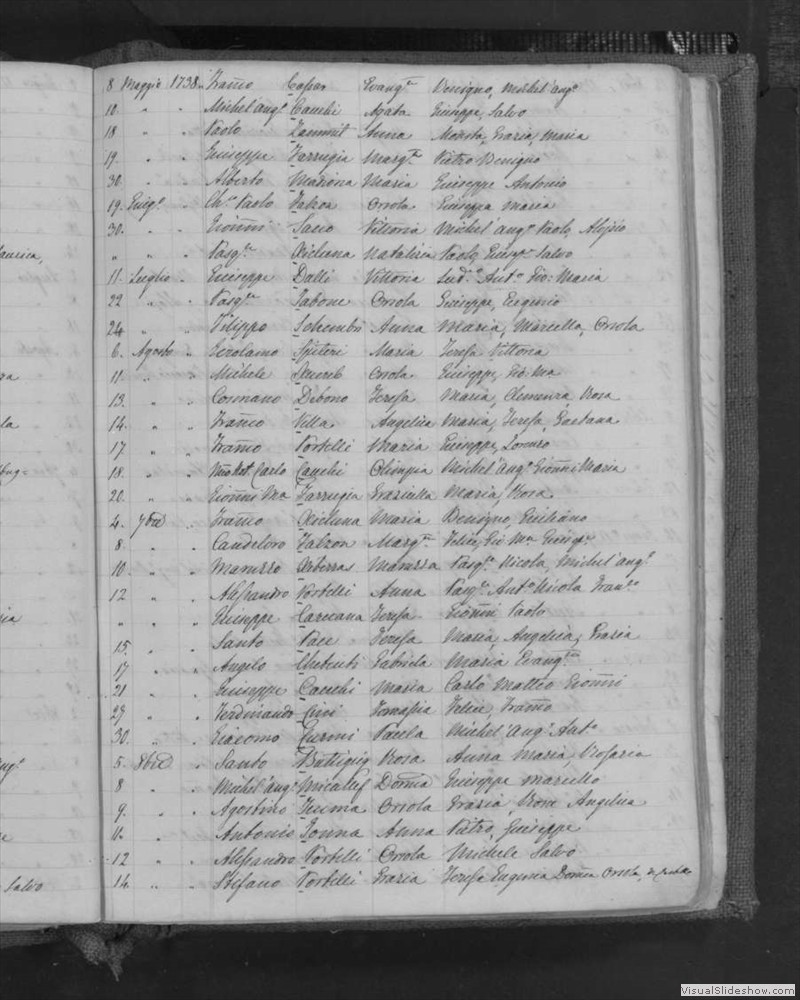 8 Maggio 1738 Franco Capar Evangta Benigno, Michel'ango
10 " " Michel'ango Cauchi Agata Giuseppe, Salvo
18 " " Paolo Zammit Anna Grazia, Maria
19 " " Giuseppe Farrugia Margta Pietro Benigno
30 " " Alberto Maria Giuseppe Antonio
19 Giugo " Paolo Falzon Orsola Giuseppa Maria
30 " " Gionni Vittoria Michel'ango Paolo, Aloisio
" " " Pasqle Xicluna Natalizia Paolo, Giuspe Salvo
11 Luglio " Giuseppe Dalli Vittoria Anto Gio: Maria
22 " " Pasqle Sabone Orsola Giuseppe, Eugenio
24 " " Filippo Schembri Anna Maria, Marcella, Orsola
6 Agosto " Gerolamo Spiteri Maria Teresa Vittoria
11 " " Michele Orsola Giuseppe, Gio: Ma
13 " " Cosmano Debono Teresa Maria, Clemenza Rosa
14 " " Franco Vella Angelica Maria, Teresa, Gaetana
17 " " Franco Portelli Maria Giuseppe, Lorenzo
18 " " Carlo Cauchi Olimpia Michel'ango Gionni Maria
20 " " Gionni Ma Farrugia Graziulla Maria, Rosa
4 7bre " Franco Xicluna Maria Benigno, Giuliano
8 " " Candeloro Falzon Margta Felice, Gio Ma Giuspe
10 " " Maruzzo Xiberras Maruzza Pasqle Nicola, Michel'ango
12 " " Alessandro Portelli Anna Pasqle Anto Nicola Franco
" " " Giuseppe Caruana Teresa Gionni Paolo
15 " " Santo Pace Teresa Maria, Angelica, Grazia
17 " " Angelo Chetcuti Gabriela Maria Evangta
21 " " Giuseppe Cauchi Maria Carlo Matteo Gionni
29 " " Ferdinando Tomasia Felice, Franco
30 " " Giacomo Curoni Paula Michel'Ango Anto
5 8bre " Santo Buttigieg Rosa Anna Maria, Rosaria
8 " " Michel'ango Micallef Domca Giuseppe Marcello
9 " " Agostino Orsola Grazia, Rosa Angelica
11 " " Antonio Tonna Anna Pietro, Giuseppe
12 " " Alessandro Portelli Orsola Michele Salvo
14 " " Stefano Portelli Grazia Teresa Eugenia Domca Orsola
Salvo
VisualSlideshow.com